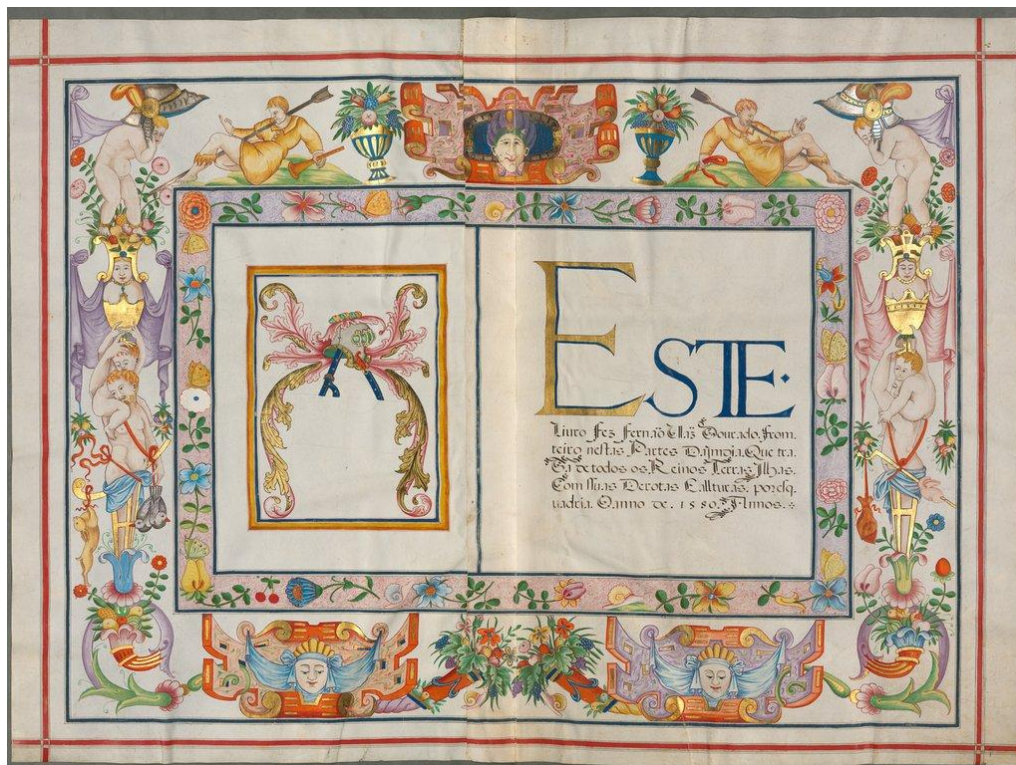 ESTE·
Liuro fez fernaõ Uaz Dourado, from
teiro nestas Partes Daimdia, Que tra
ta de todos os Reinos Terras Jlhas.
Com suas Derotas E allturas, por esq
uadria. O anno de. 1580. Annos.